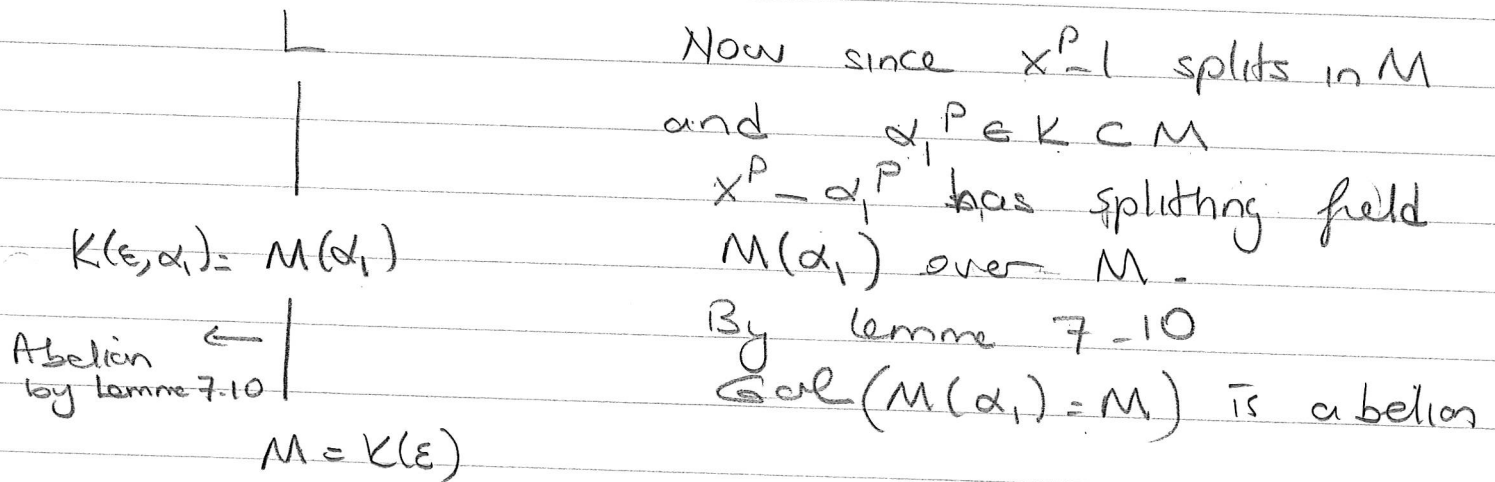 L
K(ε,α₁) = M(α₁)
Abelian ←
by Lemme 7.10
M = K(ε)
Now since x^p - 1 splits in M
and α₁^p ∈ K ⊂ M
x^p - α₁^p has splitting field
M(α₁) over M.
By lemme 7-10
Gal(M(α₁) = M) is abelian